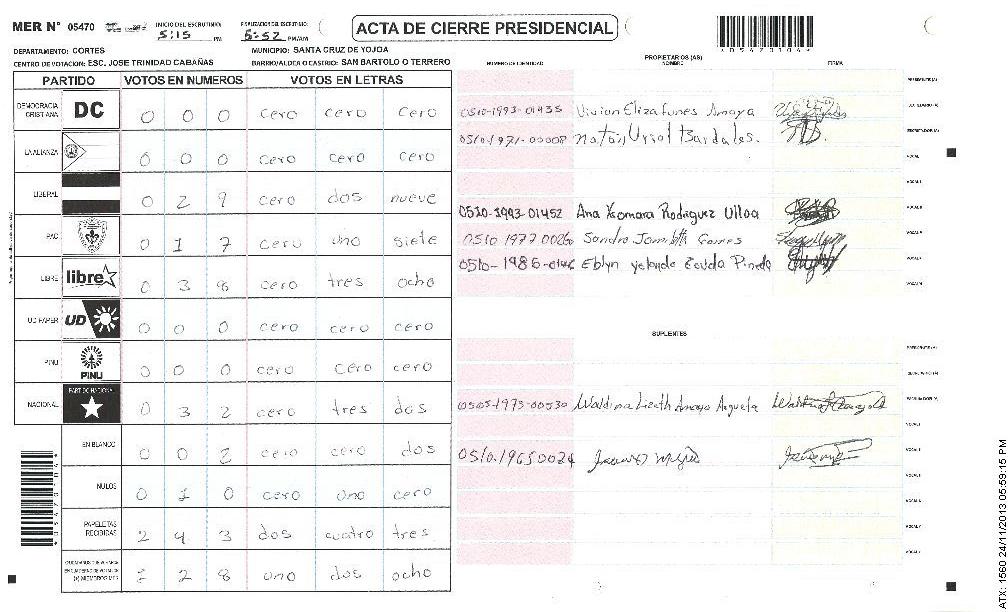 MER N° 05470 INICIO DEL ESCRUTINIO: 5:15 PM FINALIZACION DEL ESCRUTINIO: 5:52 PM/AM ACTA DE CIERRE PRESIDENCIAL
DEPARTAMENTO: CORTES MUNICIPIO: SANTA CRUZ DE YOJOA
CENTRO DE VOTACION: ESC. JOSE TRINIDAD CABAÑAS BARRIO/ALDEA O CASERIO: SAN BARTOLO O TERRERO
PARTIDO VOTOS EN NUMEROS VOTOS EN LETRAS
DEMOCRACIA CRISTIANA DC 0 0 0 cero cero cero
LA ALIANZA 0 0 0 cero cero cero
LIBERAL 0 2 9 cero dos nueve
PAC 0 1 7 cero uno siete
LIBRE libre 0 3 8 cero tres ocho
UD FAPER UD 0 0 0 cero cero cero
PINU PINU 0 0 0 cero cero cero
NACIONAL PARTIDO NACIONAL 0 3 2 cero tres dos
EN BLANCO 0 0 2 cero cero dos
NULOS 0 1 0 cero uno cero
PAPELETAS RECIBIDAS 2 4 3 dos cuatro tres
1 2 8 uno dos ocho
PROPIETARIOS (AS)
NUMERO DE IDENTIDAD NOMBRE FIRMA
PRESIDENTE (A)
0510-1993-01435 Vivian Eliza Funes Amaya
SECRETARIO (A)
0510-1971-00008 Bardales.
ESCRUTADOR (A)
VOCAL
0510-1993-01452 Ana Xiomara Rodriguez Ulloa
0510 1977 0026 Gomes
0510-1985-0146 Eblyn Yolanda Pineda
SUPLENTES
PRESIDENTE (A)
SECRETARIO (A)
0505-1973-00530 Waldina Lizeth Amaya Argueta
ESCRUTADOR (A)
0510.1965 0024
ATX: 1560 24/11/2013 05:59:15 PM